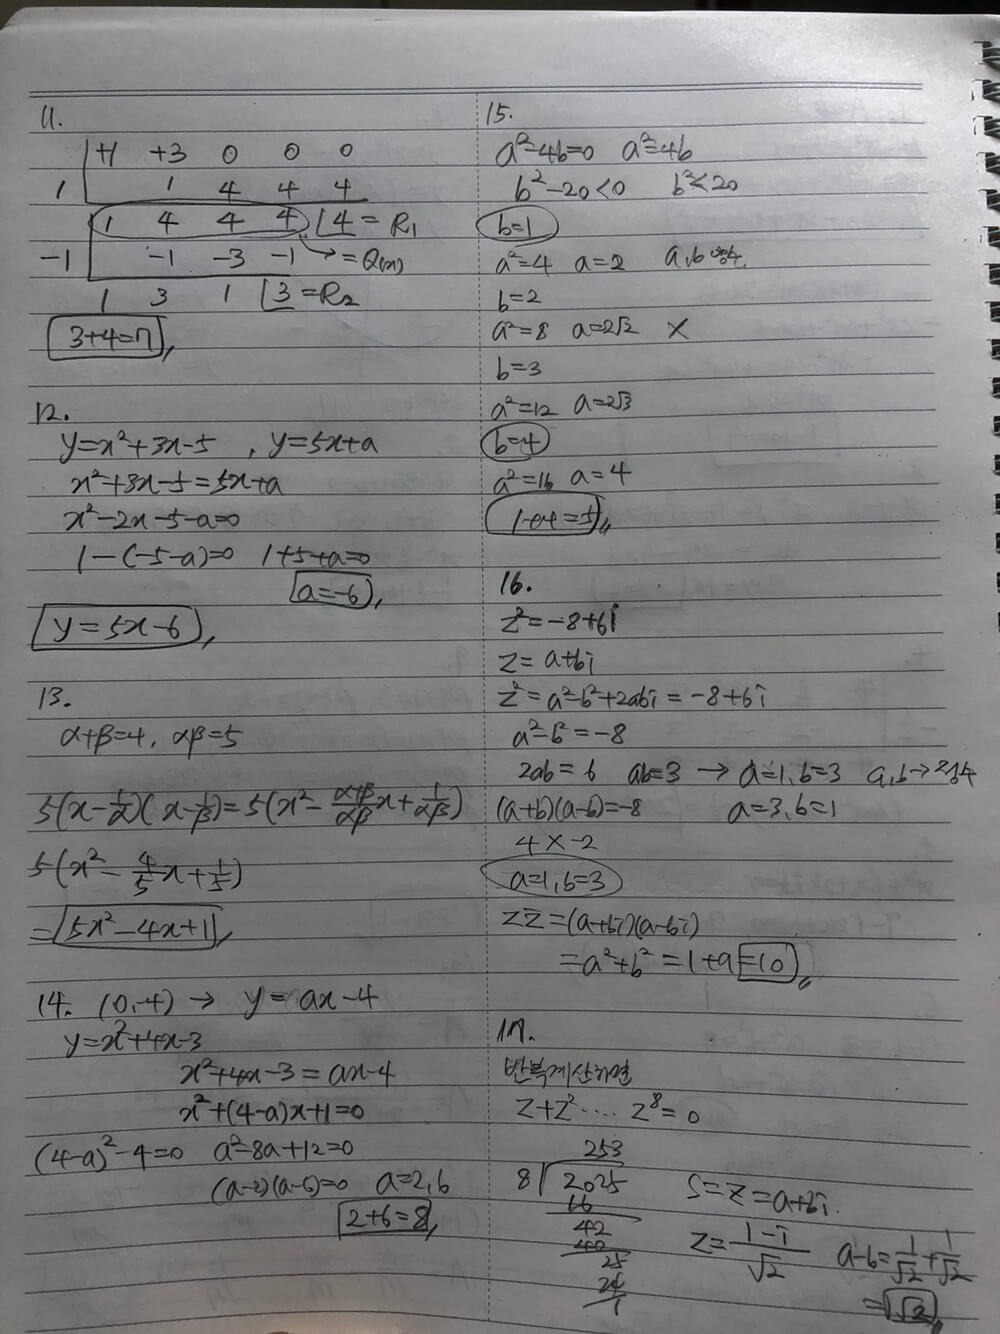 11.
+1 +3 0 0 0
1 1 4 4 4
1 4 4 4 4 = R₁
-1 -1 -3 -1 → = Q(x)
1 3 1 3 = R₂
3+4=7,
12.
y=x²+3x-5 , y=5x+a
x²+3x-5=5x+a
x²-2x-5-a=0
1-(-5-a)=0 1+5+a=0
a=-6,
y=5x-6,
13.
α+β=4, αβ=5
5(x-1/α)(x-1/β)=5(x²-(α+β)/αβ x+1/αβ)
5(x²-4/5x+1/5)
=5x²-4x+1,
14. (0,-4) → y=ax-4
y=x²+4x-3
x²+4x-3=ax-4
x²+(4-a)x+1=0
(4-a)²-4=0 a²-8a+12=0
(a-2)(a-6)=0 a=2,6
2+6=8,
15.
a²-4b=0 a²=4b
b²-20<0 b²<20
b=1
a²=4 a=2 a,b 양수
b=2
a²=8 a=2√2 ×
b=3
a²=12 a=2√3
b=4
a²=16 a=4
1+4=5,,
16.
z²=-8+6i
z=a+bi
z²=a²-b²+2abi=-8+6i
a²-b²=-8
2ab=6 ab=3 → a=1,b=3 a,b→정수
(a+b)(a-b)=-8 a=3,b=1
4×-2
a=1,b=3
zz̄=(a+bi)(a-bi)
=a²+b²=1+9=10,,
17.
반복계산하면
z+z²····z⁸=0
253
8 2025
16
42
40
25
24
1
S=z=a+bi.
z=(1-i)/√2 a-b=1/√2+1/√2
=√2,,